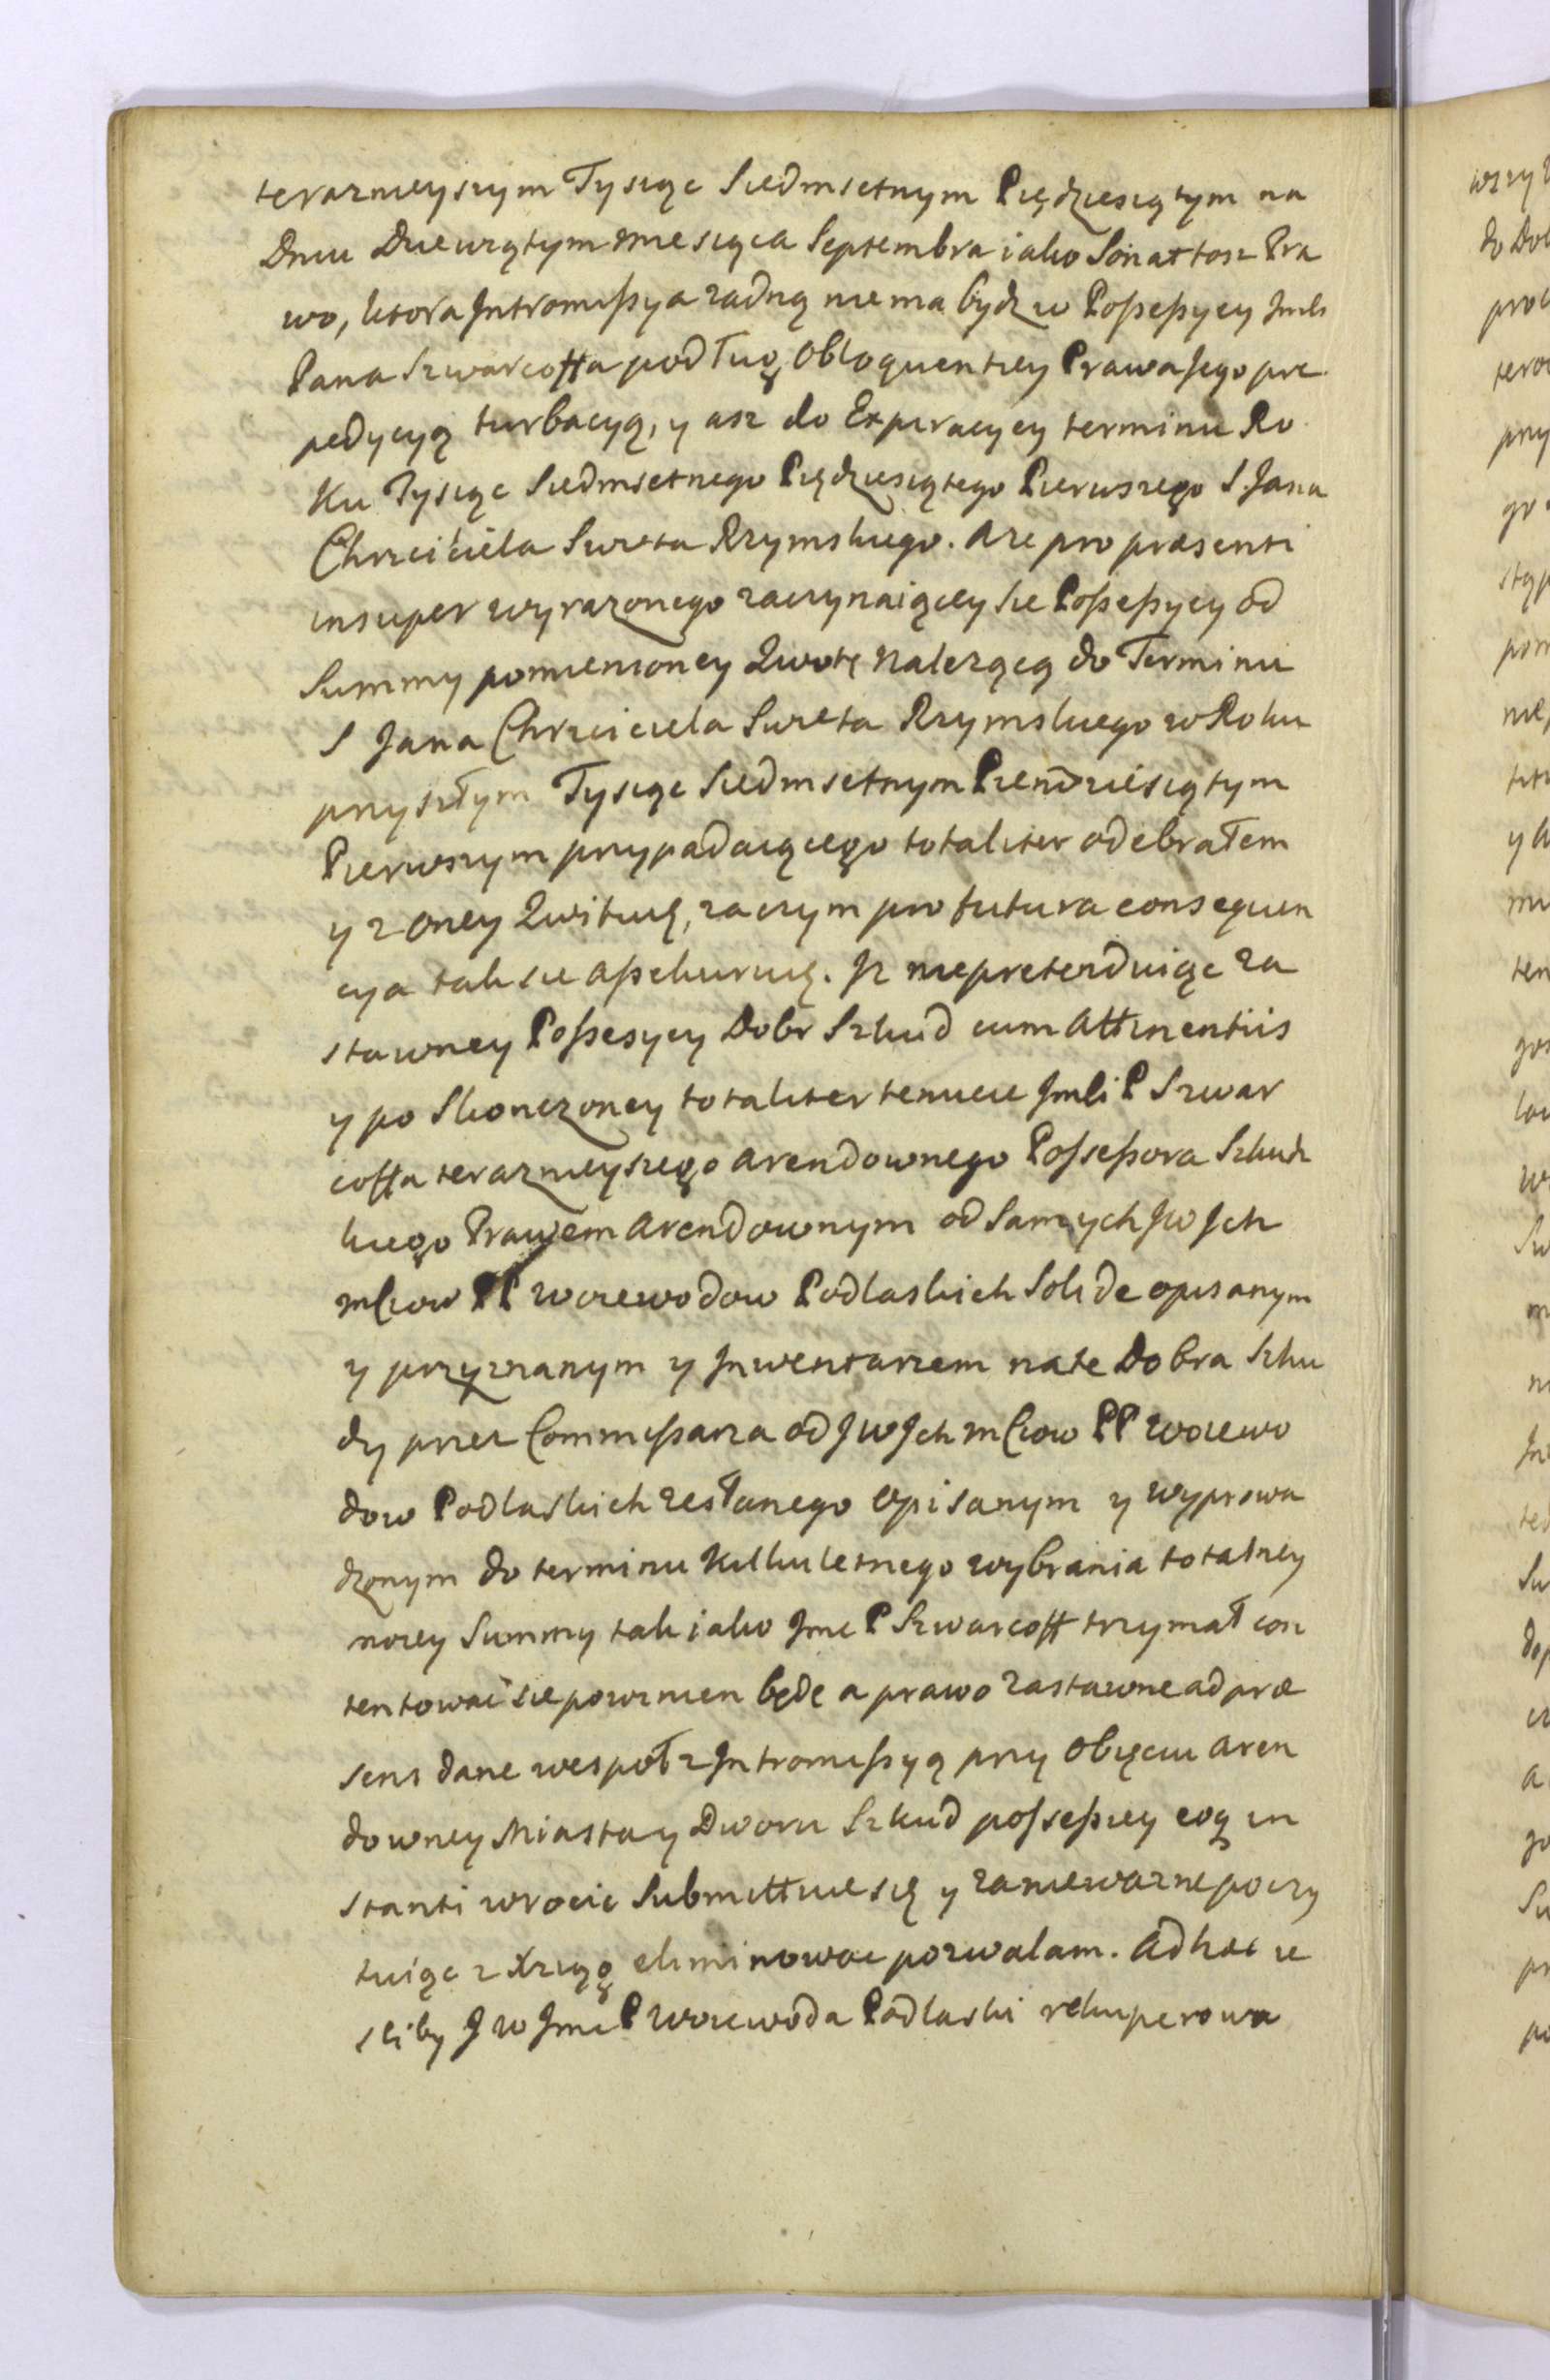 teraznieyszym Tysiąc Siedmsetnym Piędziesiątym na
Dniu Dziewiątym Miesiąca Septembra iako Sonat tosz Pra
wo, ktora Intromissya zadną nie ma bydz w Possessyey Jmśi
Pana Szwarcoffa podług obloquentiey Prawa Jego pre
pedycyą turbacyą, y asz do Expiracyey terminu Ro
ku Tysiąc Siedmsetnego Piędziesiątego Pierwszego S. Jana
Chrzciciela Swieta Rzymskiego. A ze pro præsenti
insuper wyrazonego zaczynaiącey sie Possessyey od
Summy pomienioney Qwotę nalezącą do Terminu
S Jana Chrzciciela Swieta Rzymskiego w Roku
przyszłym Tysiąc Siedmsetnym Piendziesiątym
Pierwszym przypadaiącego totaliter odebrałem
y z oney Qwituię, zaczym pro futura consequen
cya tak sie assekuruię. Iz niepretenduiąc za
stawney Possesycy Dobr Szkud cum Attinentiis
y po skonczoney totaliter tenucie Jmśi P Szwar
coffa teraznieyszego arendownego Possessora Szkudz
kiego Prawem Arendownym od Samych Jw Ich
mściow PP Woiewodow Podlaskich Solide opisanym
y przyznanym y Inwentarzem na te Dobra Szku
dy przez Commissarza od Jw Ich mściow PP Woiewo
dow Podlaskich zesłanego opisanym y wyprowa
dzonym do terminu kilkuletnego wybrania totalney
nowey Summy tak iako Jmć P Szwarcoff trzymał con
tentowac sie powinien będę a prawo zastawne ad præ
sens dane wespoł z Intromissyą przy obięciu aren
downey Miasta y Dworu Szkud possessiey eoq in
stanti wrocic submittuie się y za niewazne poczy
tuiąc z Xsiąg eliminowac pozwalam. Ad hæc ie
sliby J W Jmć P Woiewoda Podlaski rekuperowa